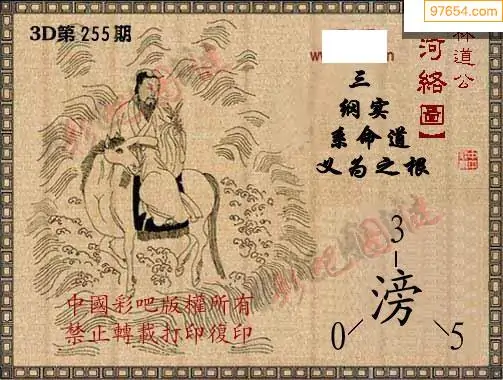 97654.com
3D第255期
道公
河絡圖】
三
纲实
系命道
义为之根
3
滂
0 5
中國彩吧版權所有
禁止轉載打印復印